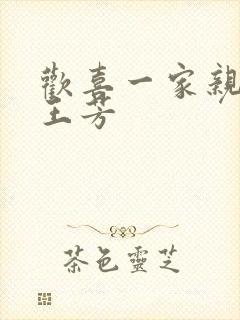 歡喜一家親
土芳
茶色靈芝